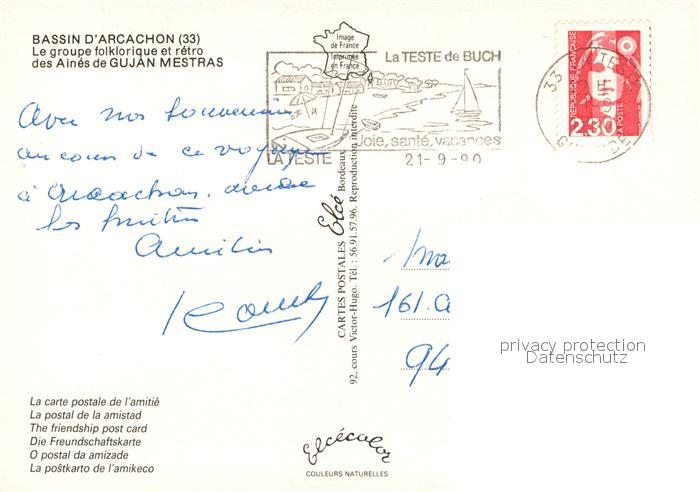 BASSIN D'ARCACHON (33)
Le groupe folklorique et rétro
des Ainés de GUJAN MESTRAS
Image
de France
Imprimée
en France
La TESTE de BUCH
Joie, santé, vacances
LA TESTE
21-9-90
33 LA TESTE
GIRONDE
REPUBLIQUE FRANÇAISE
2.30
LA POSTE
Avec nos souvenirs
au cours de ce voyage
à Arcachon,
Les
Amitiés
CARTES POSTALES Elcé Bordeaux
92, cours Victor-Hugo. Tél. : 56.91.57.96. Reproduction interdite
161.
94
privacy protection
Datenschutz
La carte postale de l'amitié
La postal de la amistad
The friendship post card
Die Freundschaftskarte
O postal da amizade
La poŝtkarto de l'amikeco
Elcécolor
COULEURS NATURELLES